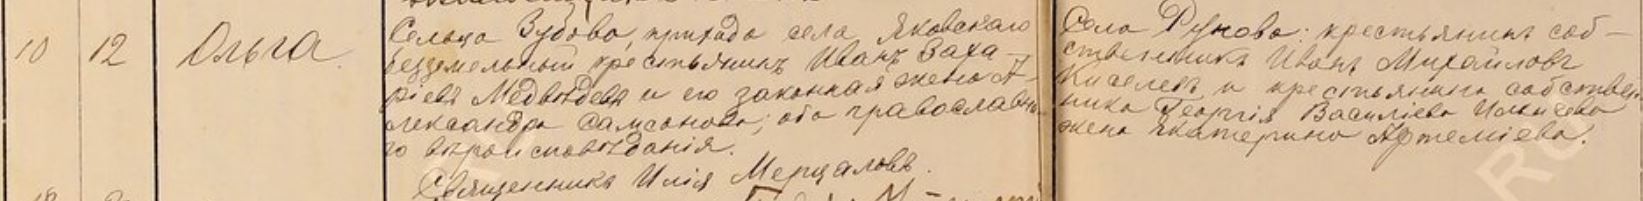 10 12 Ольга.
Сельца Зубова, прихода села Яковскаго
безземельный крестьянинъ Иванъ Заха-
ріевъ Медвѣдевъ и его законная жена А-
лександра Самсонова; оба православна-
го вѣроисповѣданія.
Священникъ Илія Мерцаловъ.
Села Рунова: крестьянинъ соб-
ственникъ Иванъ Михайловъ
Киселевъ и крестьянина собствен-
ника Георгія Василіева
жена Екатерина Артеміева.